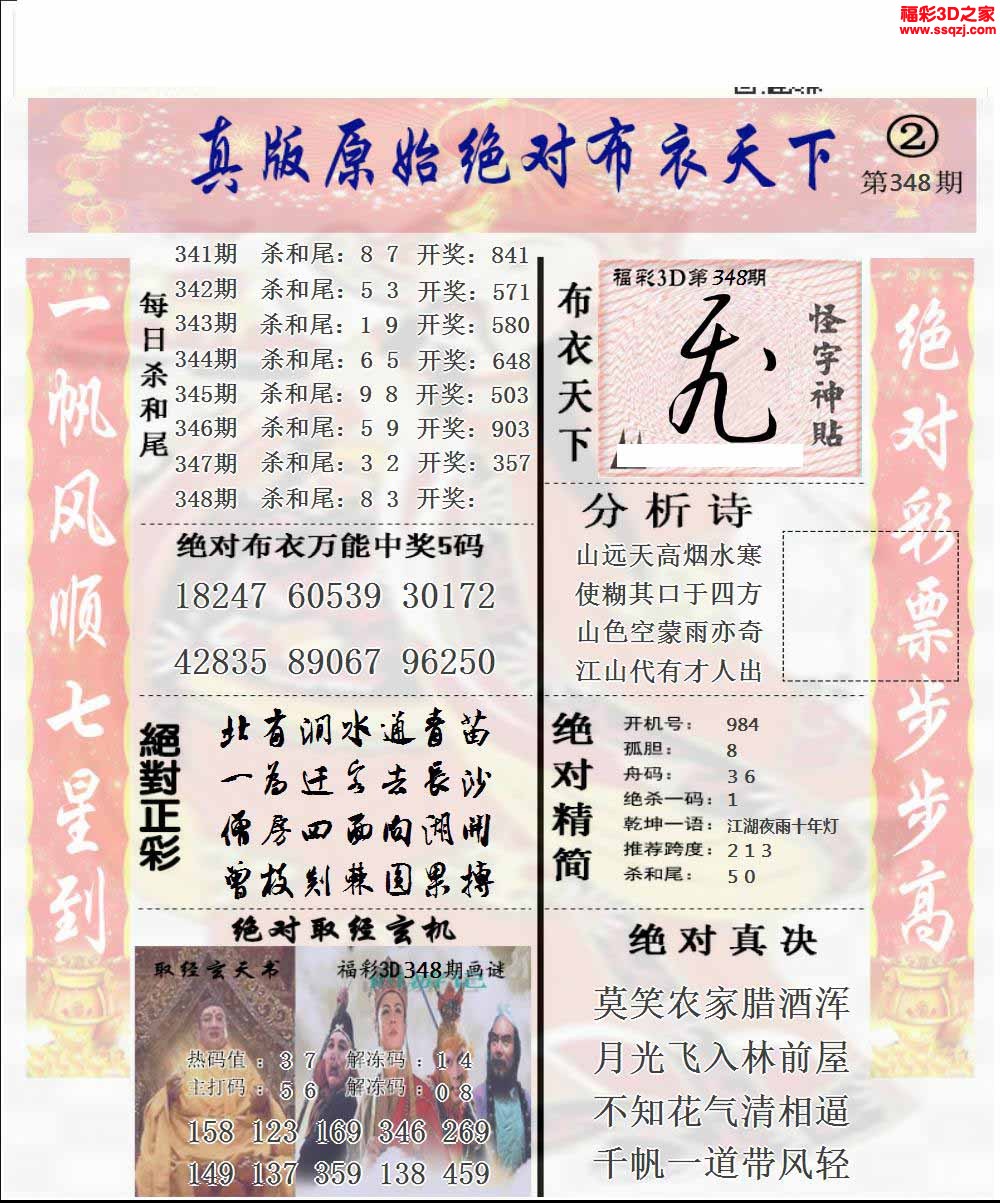 福彩3D之家
www.ssqzj.com
真版原始绝对布衣天下
②
第348期
一帆风顺七星到
每日杀和尾
341期 杀和尾：8 7 开奖：841
342期 杀和尾：5 3 开奖：571
343期 杀和尾：1 9 开奖：580
344期 杀和尾：6 5 开奖：648
345期 杀和尾：9 8 开奖：503
346期 杀和尾：5 9 开奖：903
347期 杀和尾：3 2 开奖：357
348期 杀和尾：8 3 开奖：
绝对布衣万能中奖5码
18247 60539 30172
42835 89067 96250
絕對正彩
北有涧水通青苗
一为迁客去长沙
僧房四面向湖开
曾枝剡棘圆果搏
绝对取经玄机
取经玄天书
福彩3D348期画谜
热码值：3 7 解冻码：1 4
主打码：5 6 解冻码：0 8
158 123 169 346 269
149 137 359 138 459
布衣天下
福彩3D第348期
怪字神貼
分析诗
山远天高烟水寒
使糊其口于四方
山色空蒙雨亦奇
江山代有才人出
绝对精简
开机号：984
孤胆：8
舟码：3 6
绝杀一码：1
乾坤一语：江湖夜雨十年灯
推荐跨度：2 1 3
杀和尾：5 0
绝对真决
莫笑农家腊酒浑
月光飞入林前屋
不知花气清相逼
千帆一道带风轻
绝对彩票步步高